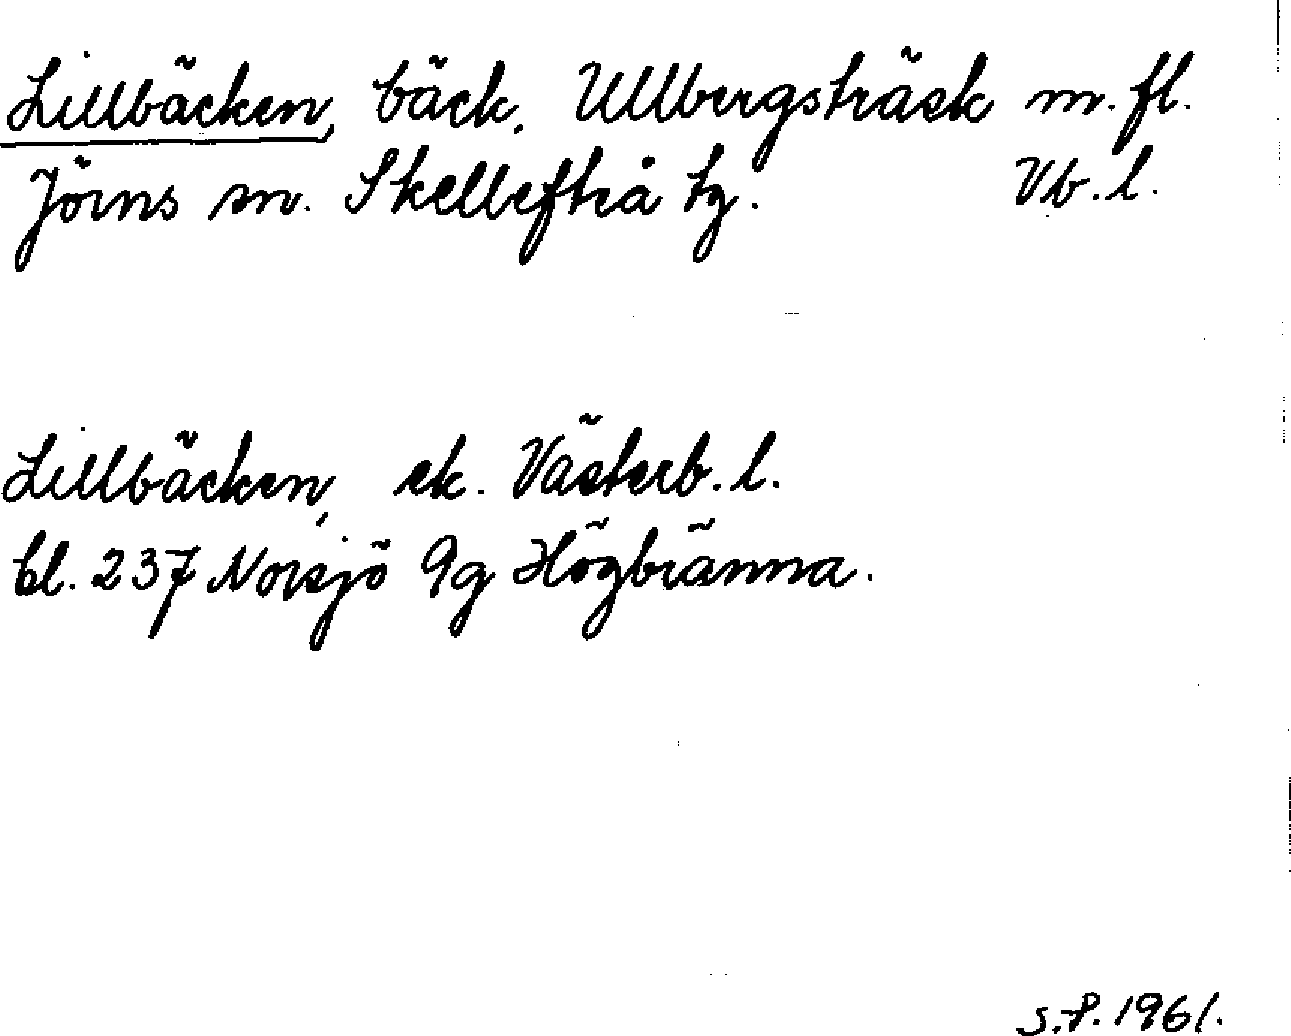 Lillbäcken, bäck, Ullbergsträsk m. fl.
Jörns sn. Skellefteå tg. Vb. l.
Lillbäcken, ek. Västerb. l.
bl. 237 Norsjö 9g Högbränna.
S.P. 1961.